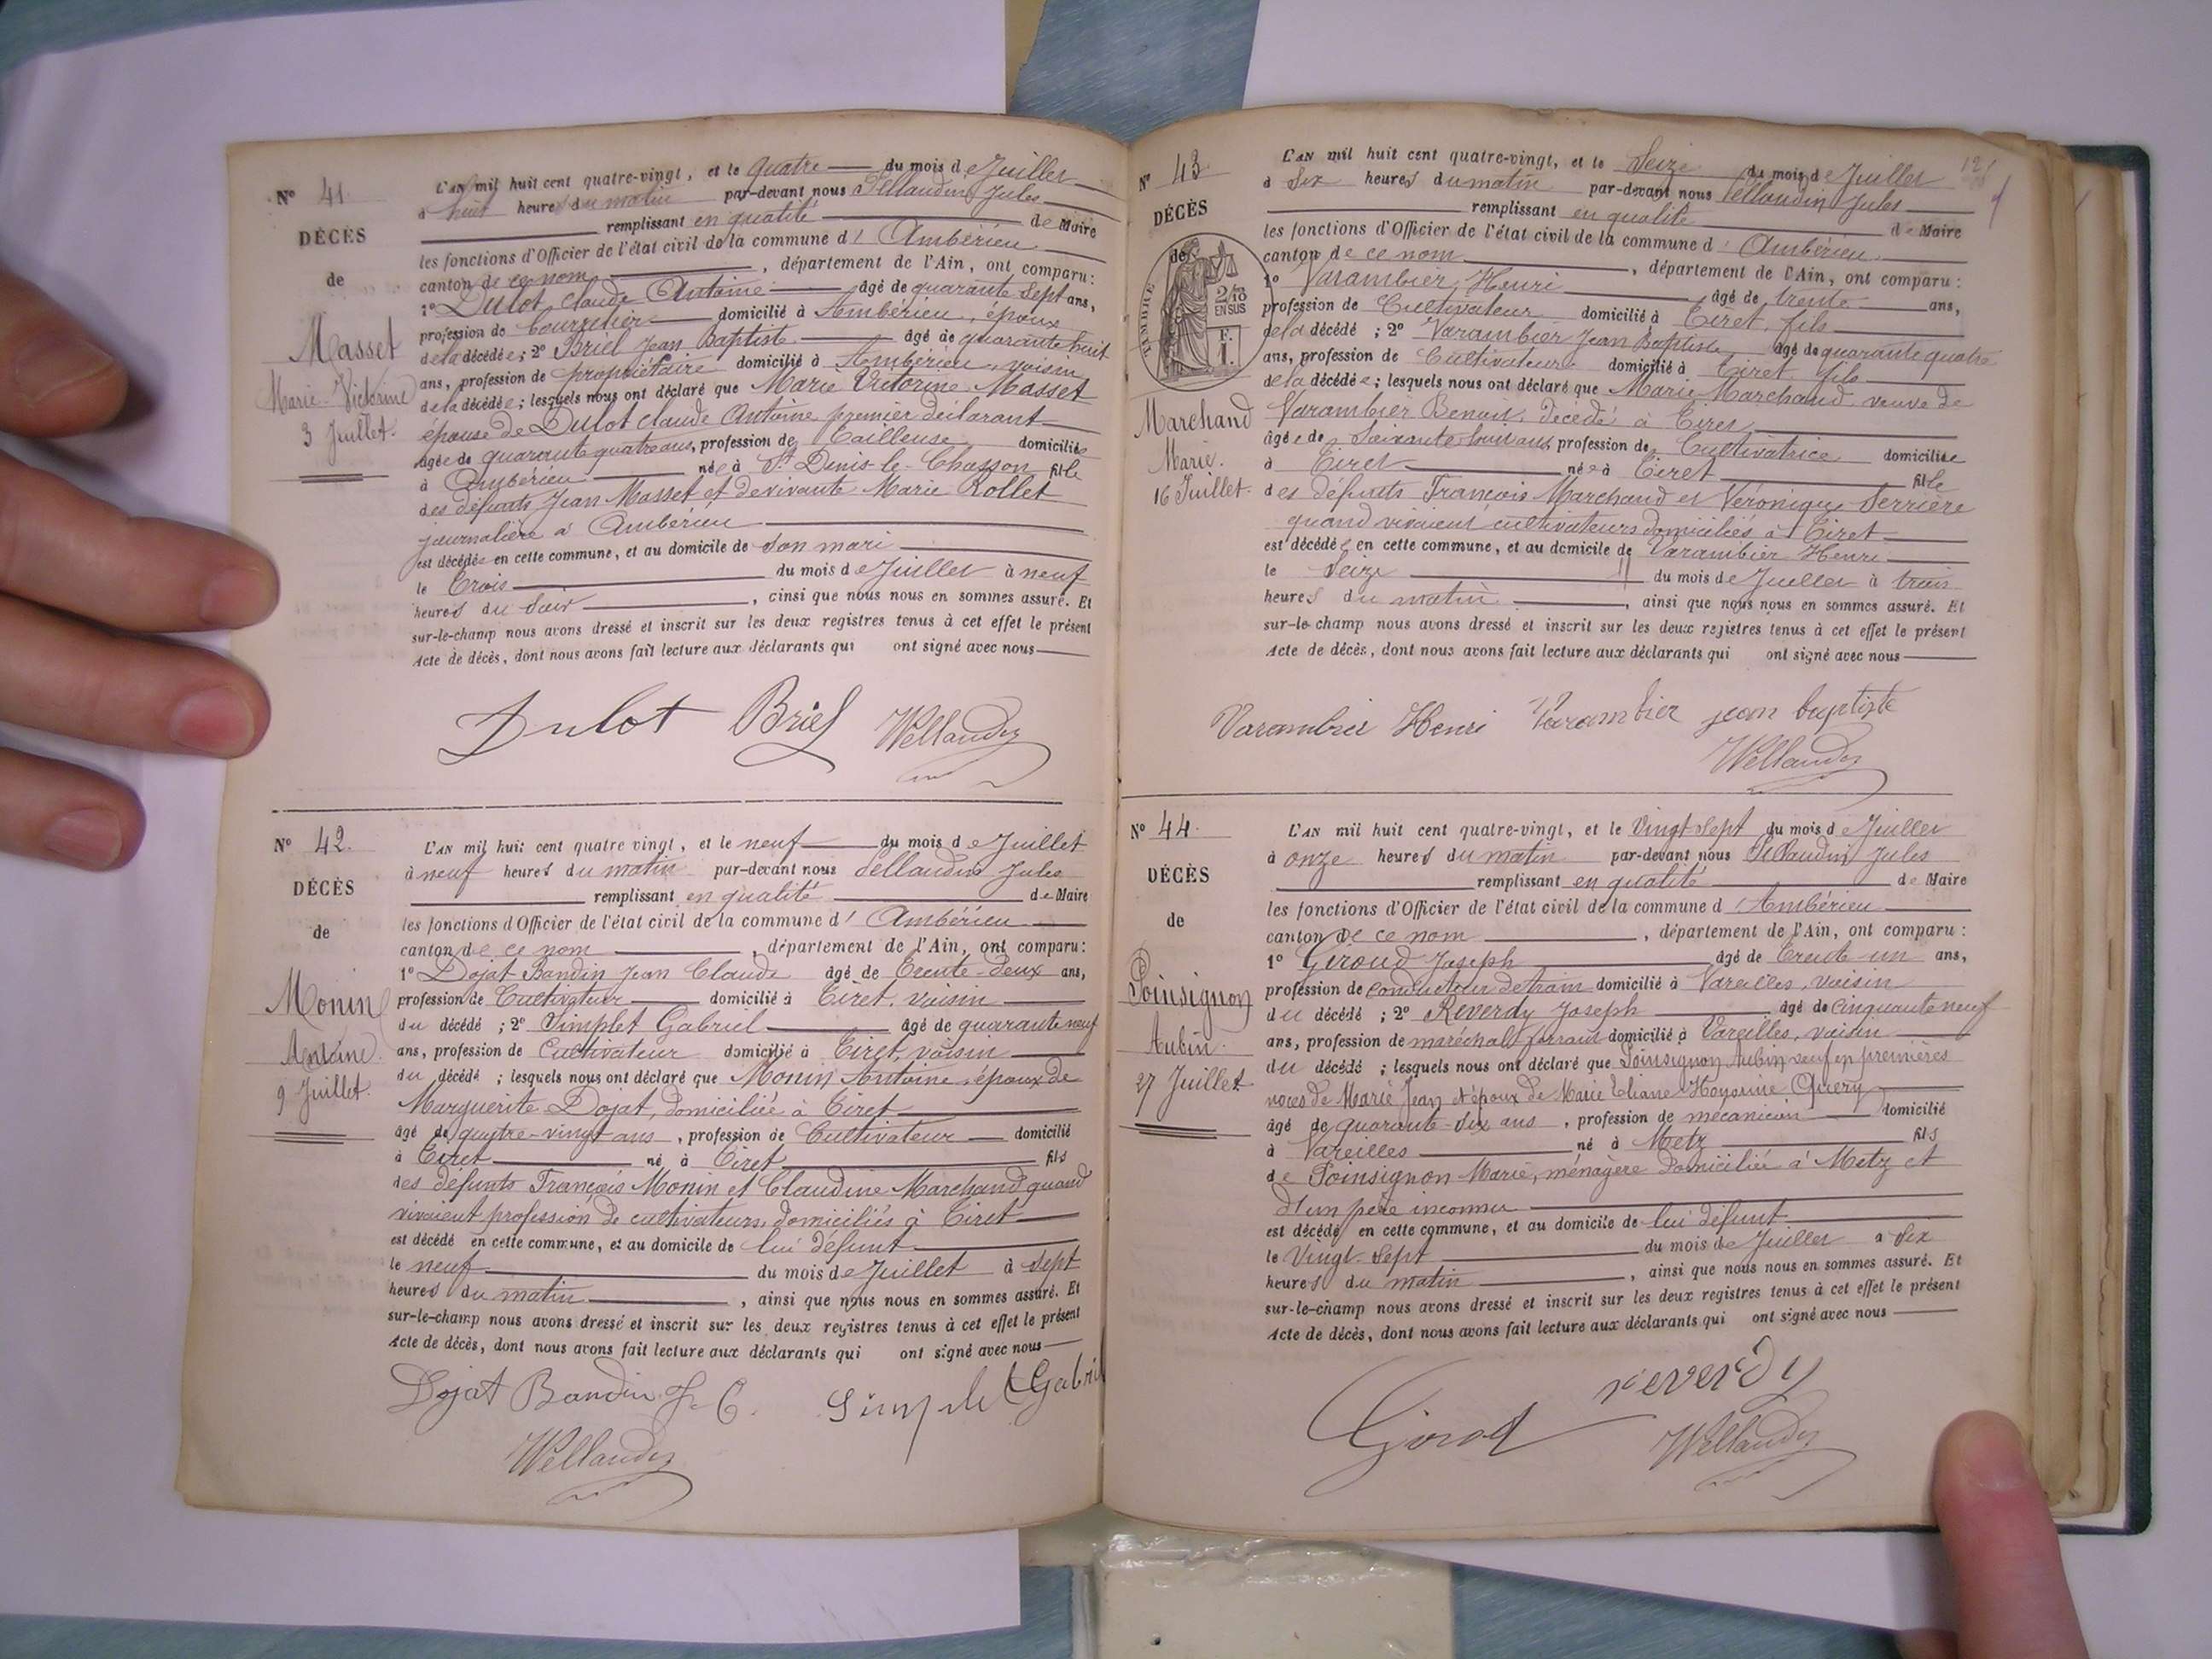 Nº 41.
DÉCÈS
de
Masset
Marie-Victorine
3 Juillet.
L'AN mil huit cent quatre-vingt, et le quatre du mois de Juillet
à huit heures du matin par-devant nous Pellaudin Jules
remplissant en qualité de Maire
les fonctions d'Officier de l'état civil de la commune d' Ambérieu
canton de ce nom, département de l'Ain, ont comparu:
1º Dulot Claude Antoine âgé de quarante sept ans,
profession de Courrelier domicilié à Ambérieu, époux
de la décédée; 2º Briel Jean Baptiste âgé de quarante huit
ans, profession de propriétaire domicilié à Ambérieu, voisin
de la décédée; lesquels nous ont déclaré que Marie Victorine Masset
épouse de Dulot Claude Antoine premier déclarant
âgée de quarante quatre ans, profession de Tailleuse domiciliée
à Ambérieu née à St Denis-le-Chosson fille
des défunts Jean Masset et de vivante Marie Rollet
journalière à Ambérieu
est décédée en cette commune, et au domicile de son mari
le Trois du mois de Juillet à neuf
heures du soir, ainsi que nous nous en sommes assuré. Et
sur-le-champ nous avons dressé et inscrit sur les deux registres tenus à cet effet le présent
Acte de décès, dont nous avons fait lecture aux déclarants qui ont signé avec nous
Dulot Briel Pellaudin
Nº 42.
DÉCÈS
de
Monin
Antoine
9 Juillet.
L'AN mil huit cent quatre vingt, et le neuf du mois de Juillet
à neuf heures du matin par-devant nous Pellaudin Jules
remplissant en qualité de Maire
les fonctions d'Officier de l'état civil de la commune d' Ambérieu
canton de ce nom, département de l'Ain, ont comparu:
1º Dojat-Bandin Jean Claude âgé de Trente-deux ans,
profession de Cultivateur domicilié à Tiret, voisin
du décédé; 2º Simplet Gabriel âgé de quarante neuf
ans, profession de Cultivateur domicilié à Tiret, voisin
du décédé; lesquels nous ont déclaré que Monin Antoine, époux de
Marguerite Dojat, domiciliée à Tiret
âgé de quatre-vingt ans, profession de Cultivateur domicilié
à Tiret né à Tiret fils
des défunts François Monin et Claudine Marchand quand
vivaient profession de cultivateurs, domiciliés à Tiret
est décédé en cette commune, et au domicile de lui défunt
le neuf du mois de Juillet à sept
heures du matin, ainsi que nous nous en sommes assuré. Et
sur-le-champ nous avons dressé et inscrit sur les deux registres tenus à cet effet le présent
Acte de décès, dont nous avons fait lecture aux déclarants qui ont signé avec nous
Dojat Bandin J. C. Simplet Gabriel
Pellaudin
Nº 43
DÉCÈS
de
TIMBRE
2/10
EN SUS
F.
1.
Marchand
Marie.
16 Juillet.
L'AN mil huit cent quatre-vingt, et le Seize du mois de Juillet
à Six heures du matin par-devant nous Pellaudin Jules
remplissant en qualité de Maire
les fonctions d'Officier de l'état civil de la commune d' Ambérieu
canton de ce nom, département de l'Ain, ont comparu:
1º Varambier Henri âgé de trente ans,
profession de Cultivateur domicilié à Tiret, fils
de la décédé; 2º Varambier Jean Baptiste âgé de quarante quatre
ans, profession de Cultivateur domicilié à Tiret fils
de la décédée; lesquels nous ont déclaré que Marie Marchand veuve de
Varambier Benoit, décédé à Tiret
âgée de ans, profession de Cultivatrice domiciliée
à Tiret née à Tiret fille
des défunts François Marchand et Véronique Serrière
quand vivaient cultivateurs domiciliés à Tiret
est décédée en cette commune, et au domicile de Varambier Henri
le Seize du mois de Juillet à trois
heures du matin, ainsi que nous nous en sommes assuré. Et
sur-le-champ nous avons dressé et inscrit sur les deux registres tenus à cet effet le présent
Acte de décès, dont nous avons fait lecture aux déclarants qui ont signé avec nous
Varambier Henri Varambier jean baptiste
Pellaudin
Nº 44.
DÉCÈS
de
Poinsignon
Aubin.
27 Juillet
L'AN mil huit cent quatre-vingt, et le Vingt-Sept du mois de Juillet
à onze heures du matin par-devant nous Pellaudin Jules
remplissant en qualité de Maire
les fonctions d'Officier de l'état civil de la commune d' Ambérieu
canton de ce nom, département de l'Ain, ont comparu:
1º Giroud Joseph âgé de Trente-un ans,
profession de Conducteur de train domicilié à Vareilles, voisin
du décédé; 2º Reverdy Joseph âgé de cinquante neuf
ans, profession de maréchal ferrant domicilié à Vareilles, voisin
du décédé; lesquels nous ont déclaré que Poinsignon Aubin veuf en premières
noces de Marie Jean et époux de Marie Eliane Honorine Quéry
âgé de quarante-six ans, profession de mécanicien domicilié
à Vareilles né à Metz fils
de Poinsignon Marie, ménagère domiciliée à Metz et
d'un père inconnu
est décédé en cette commune, et au domicile de lui défunt
le Vingt-Sept du mois de Juillet à Six
heures du matin, ainsi que nous nous en sommes assuré. Et
sur-le-champ nous avons dressé et inscrit sur les deux registres tenus à cet effet le présent
Acte de décès, dont nous avons fait lecture aux déclarants qui ont signé avec nous
reverdy
Girod Pellaudin